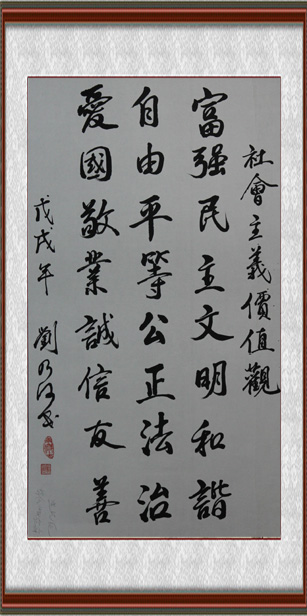 社會主義價值觀
富强民主文明和諧
自由平等公正法治
愛國敬業誠信友善
戊戌年 劉乃